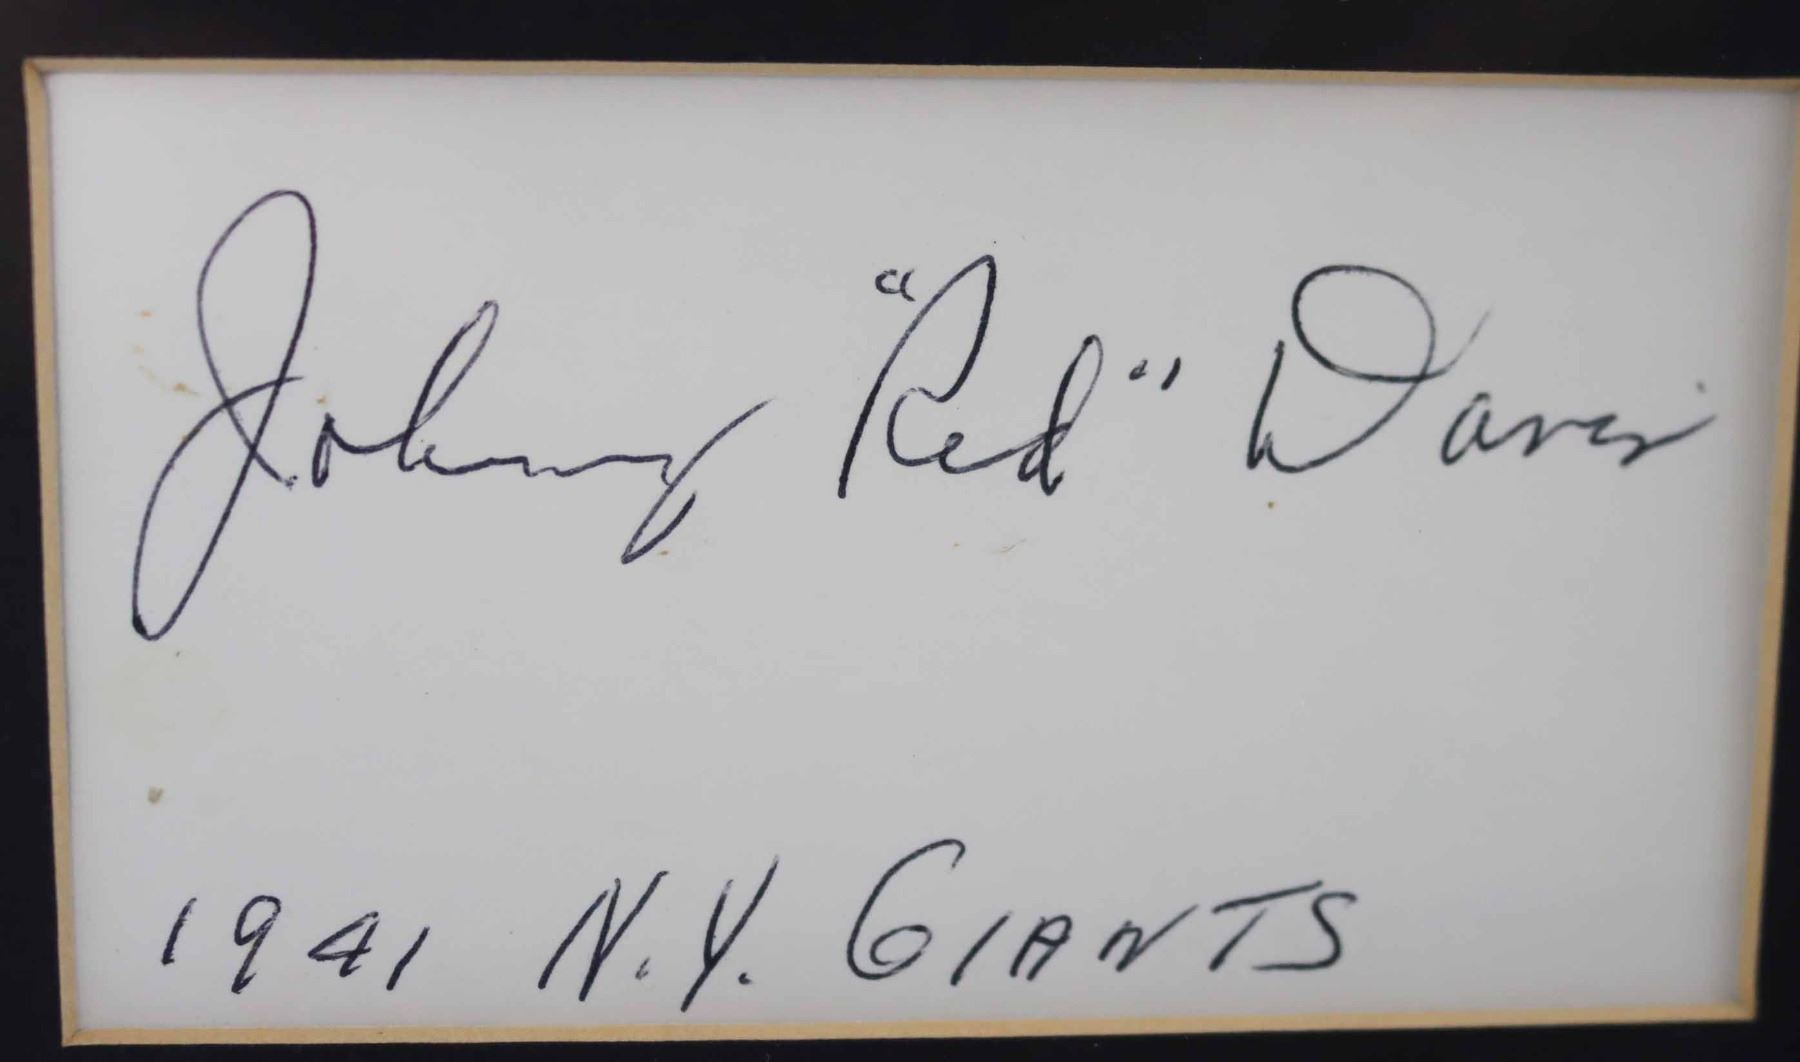 Johnny "Red" Davis
1941 N.Y. GIANTS